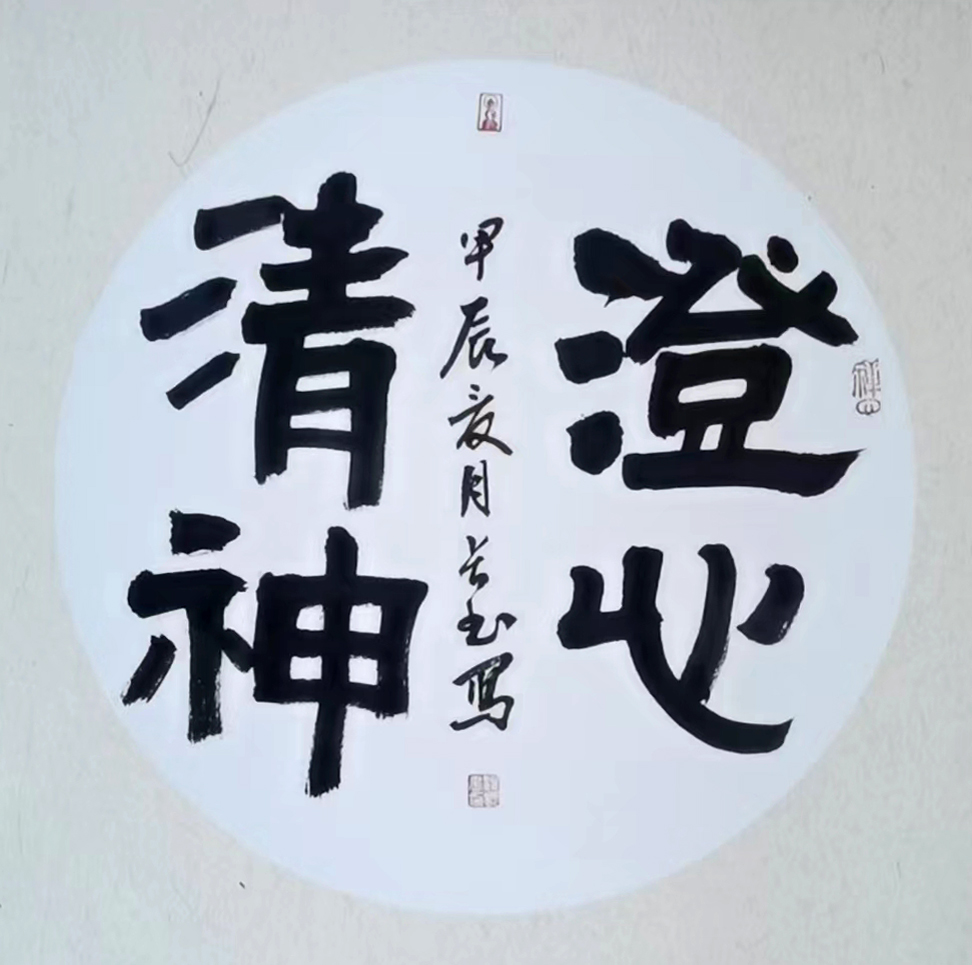 澄心
清神
甲辰夏月玉寫